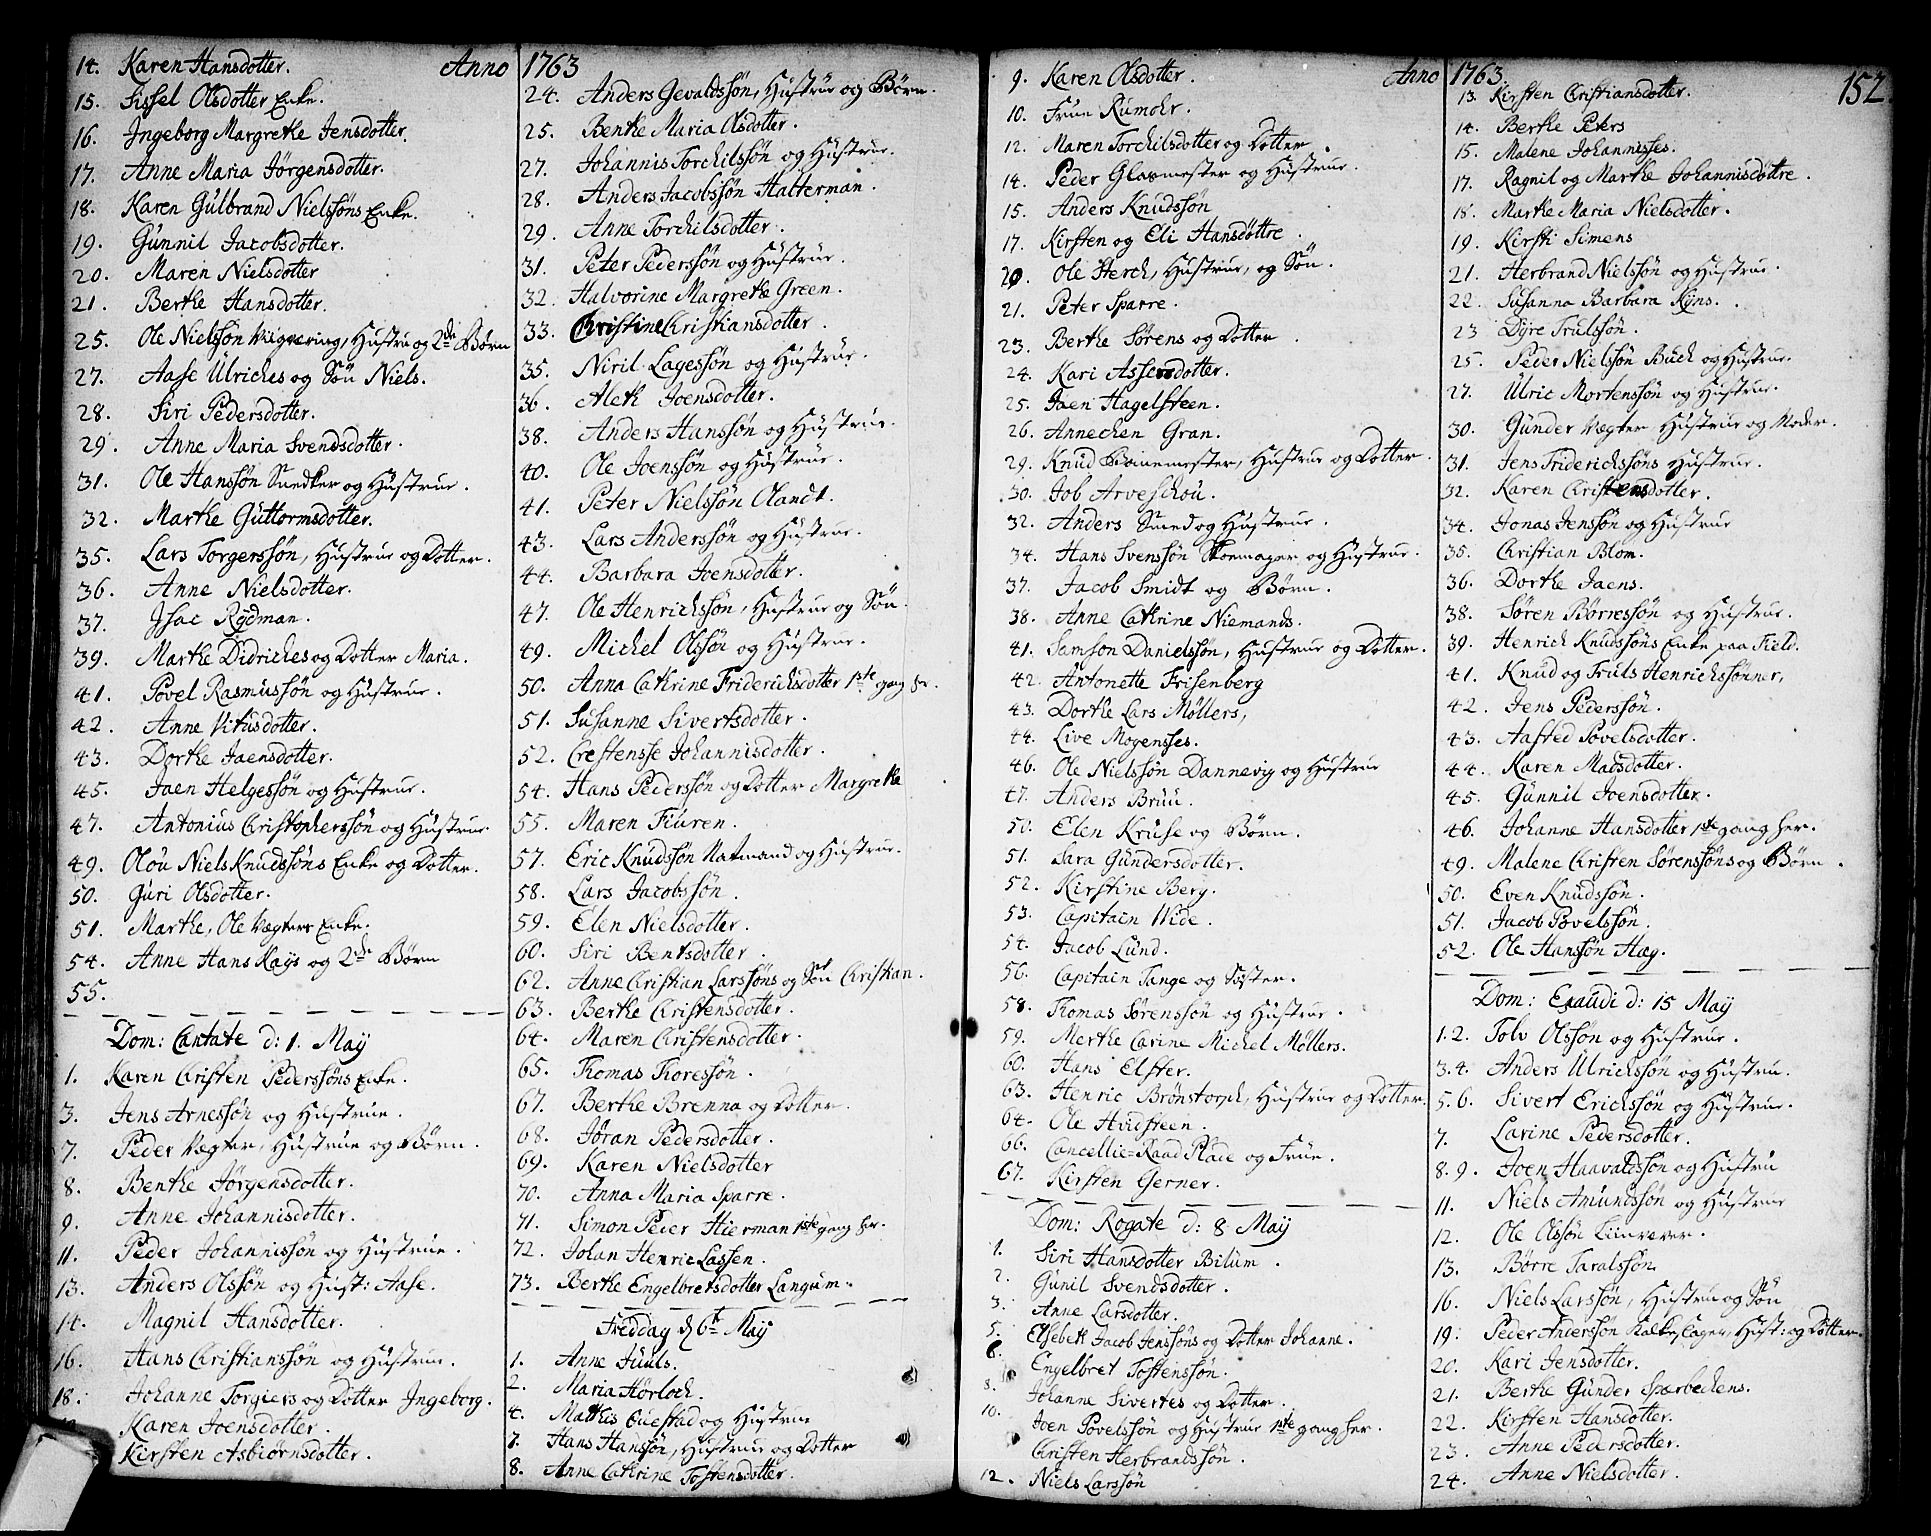 Anno 1763
14. Karen Hansdotter.
15. Sissel Olsdotter Enke.
16. Ingeborg Margrethe Jensdotter.
17. Anne Maria Jörgensdotter.
18. Karen Gulbrand Nielssöns Enke.
19. Gunnil Jacobsdotter.
20. Maren Nielsdotter
21. Berthe Hansdotter.
25. Ole Nielssön Hustru og 2de Börn
27. Aase Ulriches og Sön Niels.
28. Siri Pedersdotter.
29. Anne Maria Svendsdotter.
31. Ole Hanssön Snedker og Hustrue.
32. Marthe Guttormsdotter.
35. Lars Torgerssön, Hustrue og Dotter.
36. Anne Nielsdotter.
37. Isac Rydman.
39. Marthe Didriches og Dotter Maria.
41. Povel Rasmussön og Hustrue.
42. Anne Vitusdotter.
43. Dorthe Jaensdotter.
45. Jaen Helgessön og Hustrue.
47. Antonius Christopherssön og Hustrue.
49. Olou Niels Knudssöns Enke og Dotter.
50. Guri Olsdotter.
51. Marthe, Ole Vegters Enke.
54. Anne Hans Kays og 2de Börn
55.
Dom: Cantate d: 1. May
1. Karen Christen Pederssöns Enke.
3. Jens Arnessön og Hustrue.
7. Peder Vegter, Hustrue og Börn.
8. Benthe Jörgensdotter.
9. Anne Johannisdotter.
11. Peder Johannissön og Hustrue.
13. Anders Olssön og Hust: Aase.
14. Magnil Hansdotter.
16. Hans Christianssön og Hustrue.
18. Johanne Torgiers og Dotter Ingeborg.
Karen Joensdotter.
Kirsten Asbiörnsdotter.
24. Anders Gevaldssön, Hustrue og Börn.
25. Benthe Maria Olsdotter.
27. Johannis Torchilssön og Hustrue.
28. Anders Jacobssön Halterman.
29. Anne Torchilsdotter.
31. Peter Pederssön og Hustrue.
32. Halvorine Margrethe Green.
33. Christine Christiansdotter.
35. Niril Lagessön og Hustrue.
36. Aleth Joensdotter.
38. Anders Hanssön og Hustrue.
40. Ole Joenssön og Hustrue.
41. Peter Nielssön Olandt.
43. Lars Anderssön og Hustrue.
44. Barbara Joensdotter.
47. Ole Henrichssön, Hustrue og Sön.
49. Michel Olssön og Hustrue.
50. Anna Cathrine Friderichsdotter 1ste gang hr.
51. Susanne Sivertsdotter.
52. Crestensse Johannisdotter.
54. Hans Pederssön og Dotter Margrethe
55. Maren Fiuren.
57. Eric Knudssön Natmand og Hustrue.
58. Lars Jacobssön.
59. Elen Nielsdotter.
60. Siri Bentsdotter.
62. Anne Christian Larssöns og Sön Christian.
63. Berthe Christensdotter.
64. Maren Christensdotter.
65. Thomas Thoressön.
67. Berthe Brenna og Dotter.
68. Jöran Pedersdotter.
69. Karen Nielsdotter
70. Anna Maria Sparre.
71. Simon Peder Hierman 1ste gang hr.
72. Johan Henric Lassen.
73. Berthe Engelbretsdotter Langum.
Fredday d 6t May
1. Anne Juuls.
2. Maria Hörloch.
4. Mathis Questad og Hustrue
7. Hans Hanssön, Hustrue og Dotter
8. Anne Cathrine Tostensdotter.
Anno 1763
152.
9. Karen Olsdotter.
10. Frue Rumohr.
12. Maren Torchilsdotter og Dotter.
14. Peder Glasmester og Hustrue.
15. Anders Knudssön
17. Kirsten og Eli Hansdöttre.
20. Ole Herch, Hustrue, og Sön.
21. Peter Sparre.
23. Berthe Sörens og Dotter.
24. Kari Assersdotter.
25. Jaen Hagelsteen.
26. Annechen Gran.
29. Knud Hustrue og Dotter.
30. Job Arveschou.
32. Anders Smed og Hustrue.
34. Hans Svenssön Skoemager og Hustrue.
37. Jacob Smidt og Börn.
38. Anne Cathrine Niemands.
41. Samson Danielssön, Hustrue og Dotter.
42. Antonette Frisenberg
43. Dorthe Lars Möllers,
44. Live Mogensses.
46. Ole Nielssön Dannevig og Hustrue
47. Anders Bruu.
50. Elen Kruse og Börn.
51. Sara Gundersdotter.
52. Kirstine Berg.
53. Capitain Wide.
54. Jacob Lund.
56. Capitain Tange og Söster.
58. Thomas Sörenssön og Hustrue.
59. Merthe Carine Michel Möllers.
60. Hans Elster.
63. Henric Brönstorph, Hustrue og Dotter.
64. Ole Hvidsteen.
66. Cancellie-Raad Plade og Frue.
67. Kirsten Gerner.
Dom: Rogate d: 8 May
1. Siri Hansdotter Bilum.
2. Gunil Svendsdotter.
3. Anne Larsdotter.
5. Elsebeth Jacob Jenssöns og Dotter Johanne.
6. Engelbret Tostenssön.
8. Johanne Sivertes og Dotter.
10. Joen Povelssön og Hustrue 1ste gang her.
Christen Herbrandssön.
12. Niels Larssön
13. Kirsten Christiansdotter.
14. Berthe Peters
15. Malene Johannisses.
17. Ragnil og Marthe Johannisdöttre.
18. Marthe Maria Nielsdotter.
19. Kirsti Simens
21. Herbrand Nielssön og Hustrue.
22. Susanna Barbara Ryns.
23 Dyre Trulssön.
25. Peder Nielssön Buch og Hustrue.
27. Ulric Mortenssön og Hustrue.
30. Gunder Vegter Hustrue og Moder.
31. Jens Friderichssöns Hustrue.
32. Karen Christensdotter.
34. Jonas Jenssön og Hustrue
35. Christian Blom.
36. Dorthe Jaens.
38. Sören Börressön og Hustrue.
39. Henrich Knudssöns Enke paa Field.
41. Knud og Truls Henrichssönner,
42. Jens Pederssön.
43. Aasted Povelsdotter.
44. Karen Madsdotter.
45. Gunnil Joensdotter.
46. Johanne Hansdotter 1ste gang her.
49. Malene Christen Sörenssöns og Börn.
50. Even Knudssön.
51. Jacob Povelssön.
52. Ole Hanssön Hæg.
Dom: Exaudi d: 15 May
1. 2. Tolv Olsson og Hustrue.
3. 4. Anders Ulrichssön og Hustru.
5. 6. Sivert Erichssön og Hustrue.
7. Larine Pedersdotter.
8. 9. Joen Haavaldssön og Hustru
11. Niels Amundssön og Hustrue
12. Ole Olssön
13. Börre Taralssön.
16. Niels Larssön, Hustru og Sön
19. Peder Anderssön Kalkeslager, Hust: og Dotter.
20. Kari Jensdotter.
21. Berthe Gunder Spærbechens.
22. Kirsten Hansdotter.
23. Anne Pedersdotter.
24. Anne Nielsdotter.